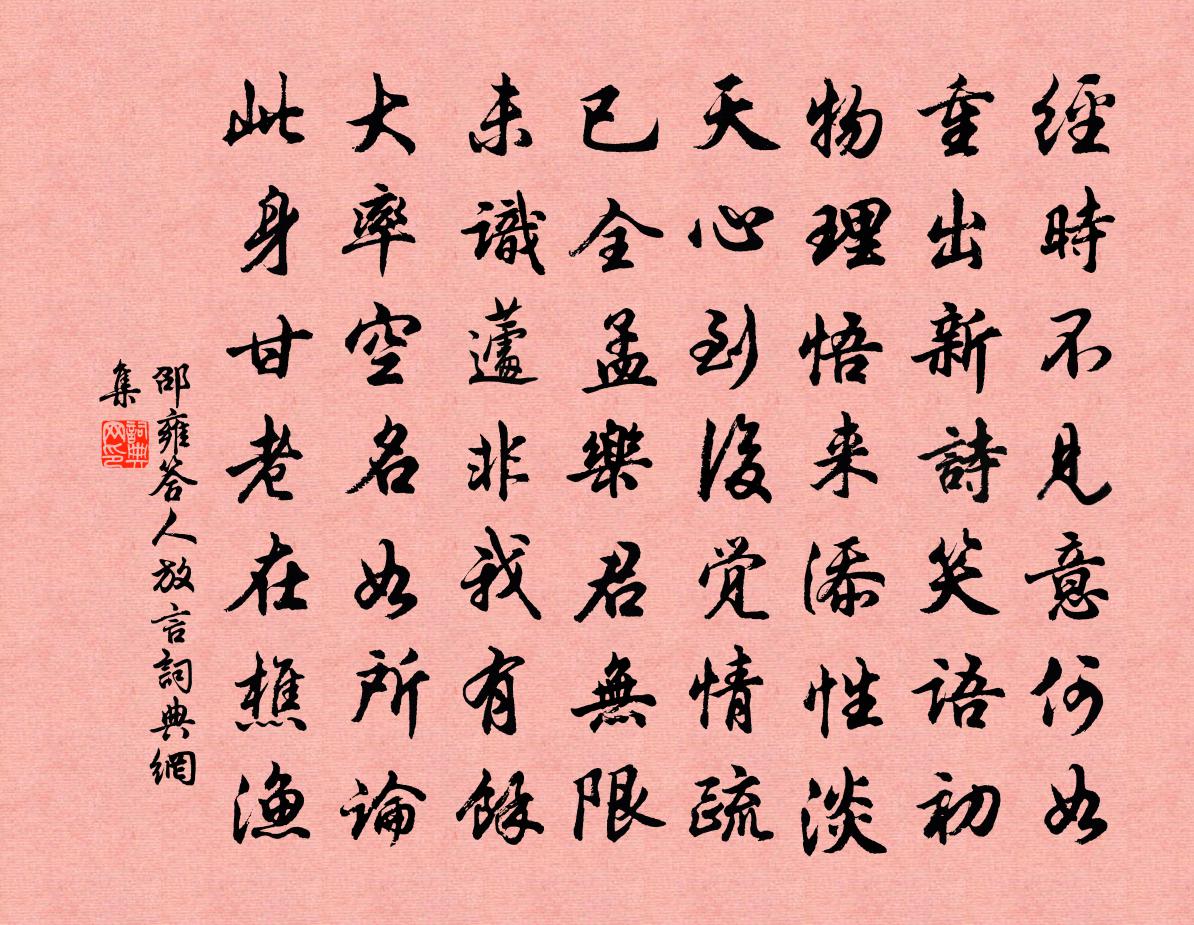 經時不見意何如
重出新詩笑語初
物理悟来添性淡
天心到後覺情疏
已全孟樂君無限
未識蘧非我有餘
大率空名如所論
此身甘老在樵漁
邵雍答人放言詞典網
集
詞典
网印